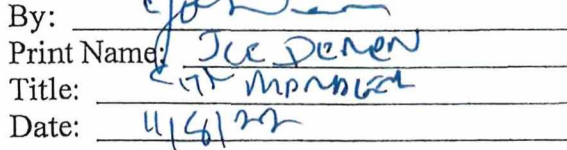 By:
Print Name: Joe DeMon
Title: City Manager
Date: 11/8/22